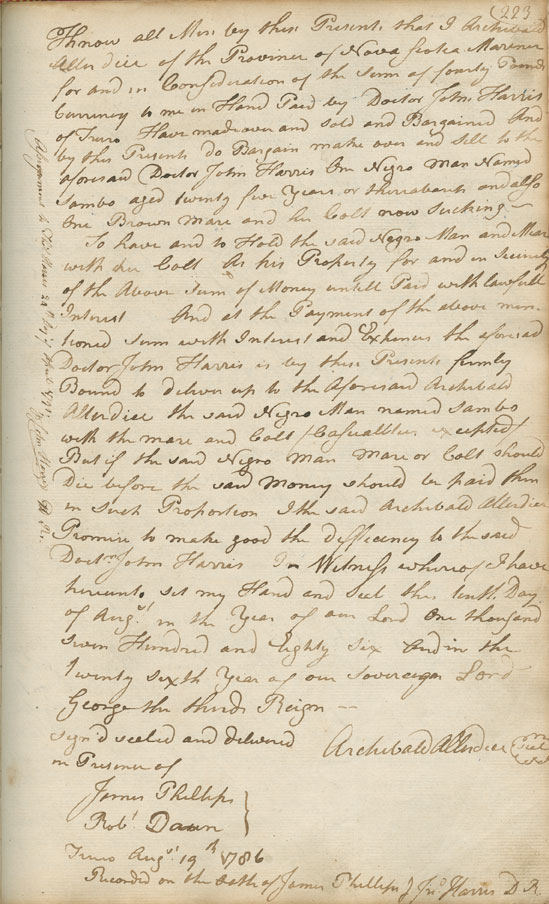 (223
Know all Men by these Presents that I Archibald
Allardice of the Province of Nova Scotia Mariner
for and in Consideration of the Sum of fourty Pounds
Currency to me in Hand Paid by Doctor John Harris
of Truro Have made over and Sold and Bargained And
by these Presents do Bargain make over and Sell to the
aforesaid Doctor John Harris One Negro Man Named
Sambo aged twenty five Years or thereabouts and also
One Brown Mare and her Colt now Sucking —
To have and to Hold the said Negro Man and Mare
with her Colt As his Property for and in Security
of the Above Sum of Money untill Paid with lawfull
Interest And at the Payment of the above men-
tioned Sum with Interest and Expences the aforesaid
Doctor John Harris is by these Presents firmly
Bound to deliver up to the Aforesaid Archibald
Allardice the said Negro Man named Sambo
with the mare and Colt (Casualties excepted)
But if the said Negro Man Mare or Colt should
Die before the said Money should be paid then
in Such Proportion I the said Archibald Allardice
Promise to make good the difficency to the said
Doctr John Harris In Witness whereof I have
hereunto set my Hand and Seal this tenth Day
of Augst in the Year of our Lord One thousand
Seven Hundred and Eighty Six And in the
Twenty Sixth Year of our Sovereign Lord
George the thirds Reign —
Sign'd Sealed and delivered Archibald Allardice
in Presence of
James Phillips
Robt Dawn
Truro Augst 19th 1786
Recorded on the Oath of James Phillips Jno Harris D R